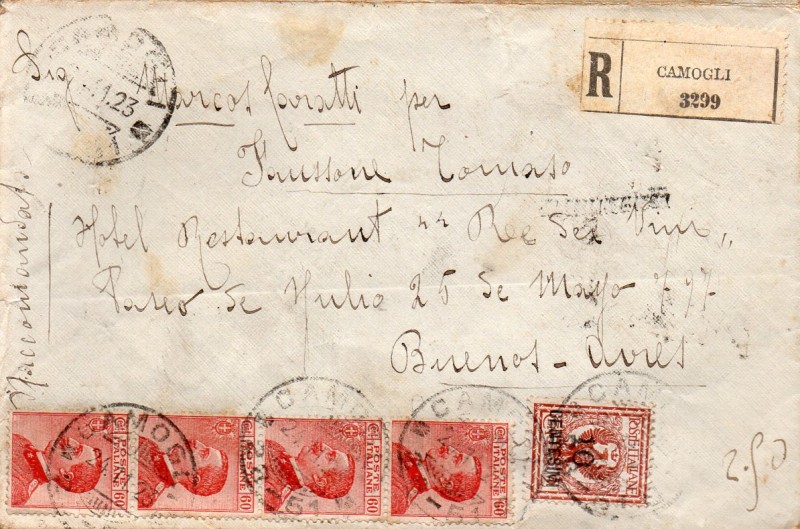 R
CAMOGLI
3299
1.23
Sig Marcos Coratti per
Faussone Tomaso
Hotel Restaurant "Re dei Vini"
Paseo de Julio 25 de Mayo 797
Buenos-Ayres
Raccomandata
CAMOGLI
POSTE ITALIANE
60
POSTE ITALIANE
60
POSTE ITALIANE
60
POSTE ITALIANE
60
CAM
POSTE ITALIANE
CENTESIMI 10
2.50